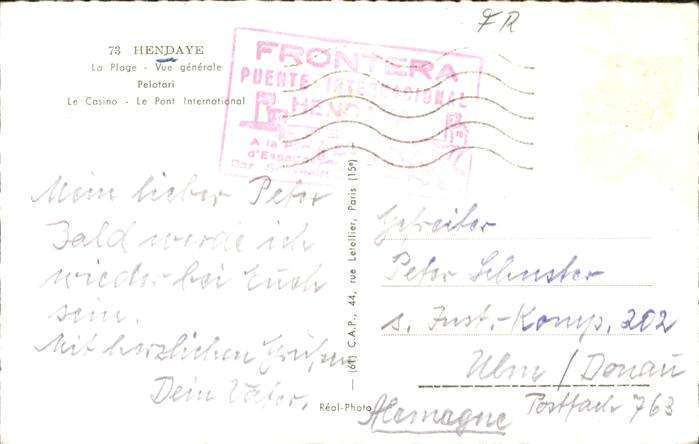 FR
73 HENDAYE
La Plage - Vue générale
Pelotari
Le Casino - Le Pont International
FRONTERA
PUENTE INTERNACIONAL
A la
d'Espagne
Mein lieber Peter
Bald werde ich
wieder bei Euch
sein.
Mit herzlichen Grüßen
Dein Vater.
(61) C.A.P., 44, rue Letellier, Paris (15e)
Réal-Photo
Gefreiter
Peter Schuster
s. Inst.-Komp. 202
Ulm / Donau
Postfach 763
Alemagne